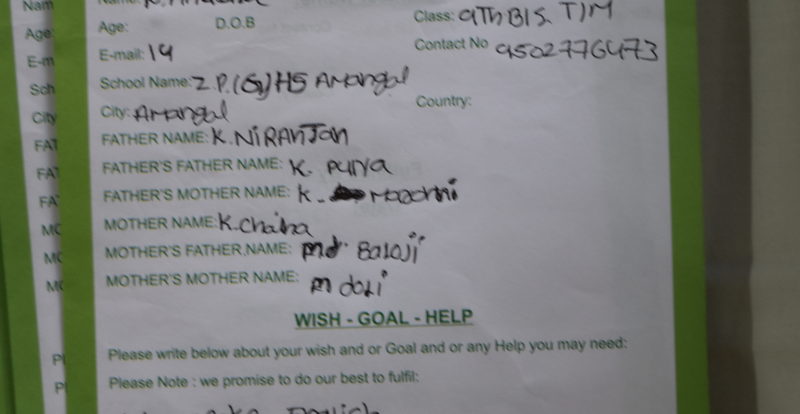 Nam
Age:
E-m
Sch
City
FAT
FA
FA
MO
MO
MO
Pl
Pl
Name:
Age: D.O.B Class: 9Th B/S. T/M
E-mail: 14 Contact No 9502776473
School Name: Z.P.(G)HS Amangal
City: Amangal Country:
FATHER NAME: K.NiRANJAN
FATHER'S FATHER NAME: K. Purya
FATHER'S MOTHER NAME: K.
MOTHER NAME: K.Chaina
MOTHER'S FATHER NAME: Balaji
MOTHER'S MOTHER NAME: m doli
WISH - GOAL - HELP
Please write below about your wish and or Goal and or any Help you may need:
Please Note : we promise to do our best to fulfil: